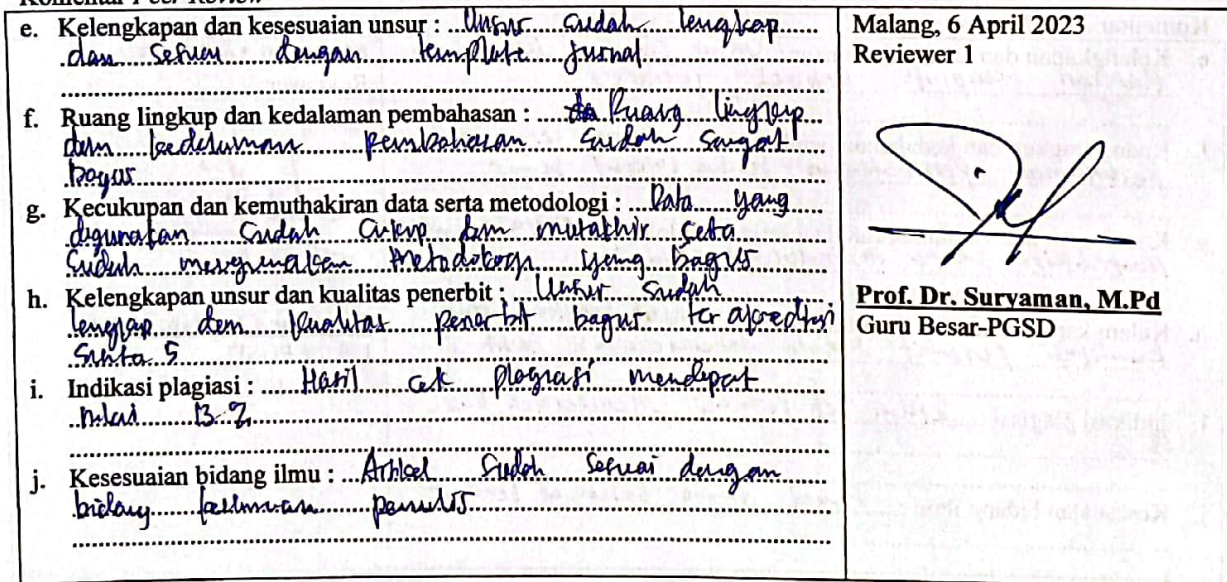 Komentar Peer Review
e. Kelengkapan dan kesesuaian unsur : Unsur sudah lengkap
dan sesuai dengan template jurnal
f. Ruang lingkup dan kedalaman pembahasan : Ruang lingkup
dan kedalaman pembahasan sudah sangat
bagus
g. Kecukupan dan kemuthakiran data serta metodologi : Data yang
digunakan sudah cukup dan mutakhir serta
sudah menggunakan metodologi yang bagus
h. Kelengkapan unsur dan kualitas penerbit : Unsur sudah
lengkap dan kualitas penerbit bagus ter akreditasi
Sinta 5
i. Indikasi plagiasi : Hasil cek plagiasi mendapat
nilai
j. Kesesuaian bidang ilmu : Artikel sudah sesuai dengan
bidang keilmuan penulis
Malang, 6 April 2023
Reviewer 1
Prof. Dr. Suryaman, M.Pd
Guru Besar-PGSD